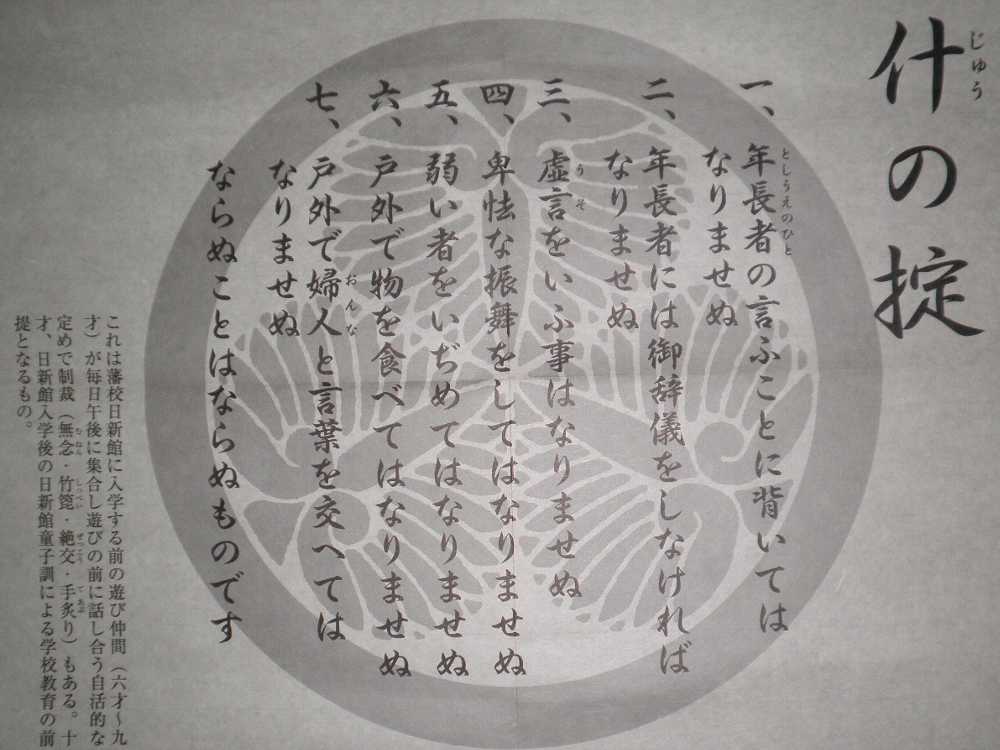 什の掟
一、年長者の言ふことに背いては
なりませぬ
二、年長者には御辞儀をしなければ
なりませぬ
三、虚言をいふ事はなりませぬ
四、卑怯な振舞をしてはなりませぬ
五、弱い者をいぢめてはなりませぬ
六、戸外で物を食べてはなりませぬ
七、戸外で婦人と言葉を交へては
なりませぬ
ならぬことはならぬものです
これは藩校日新館に入学する前の遊び仲間（六才〜九
才）が毎日午後に集合し遊びの前に話し合う自活的な
定めで制裁（無念・竹箆・絶交・手炙り）もある。十
才、日新館入学後の日新館童子訓による学校教育の前
提となるもの。